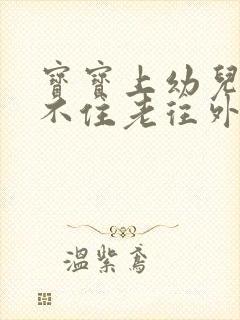 寶寶上幼兒
不住老往外
溫紫鳶